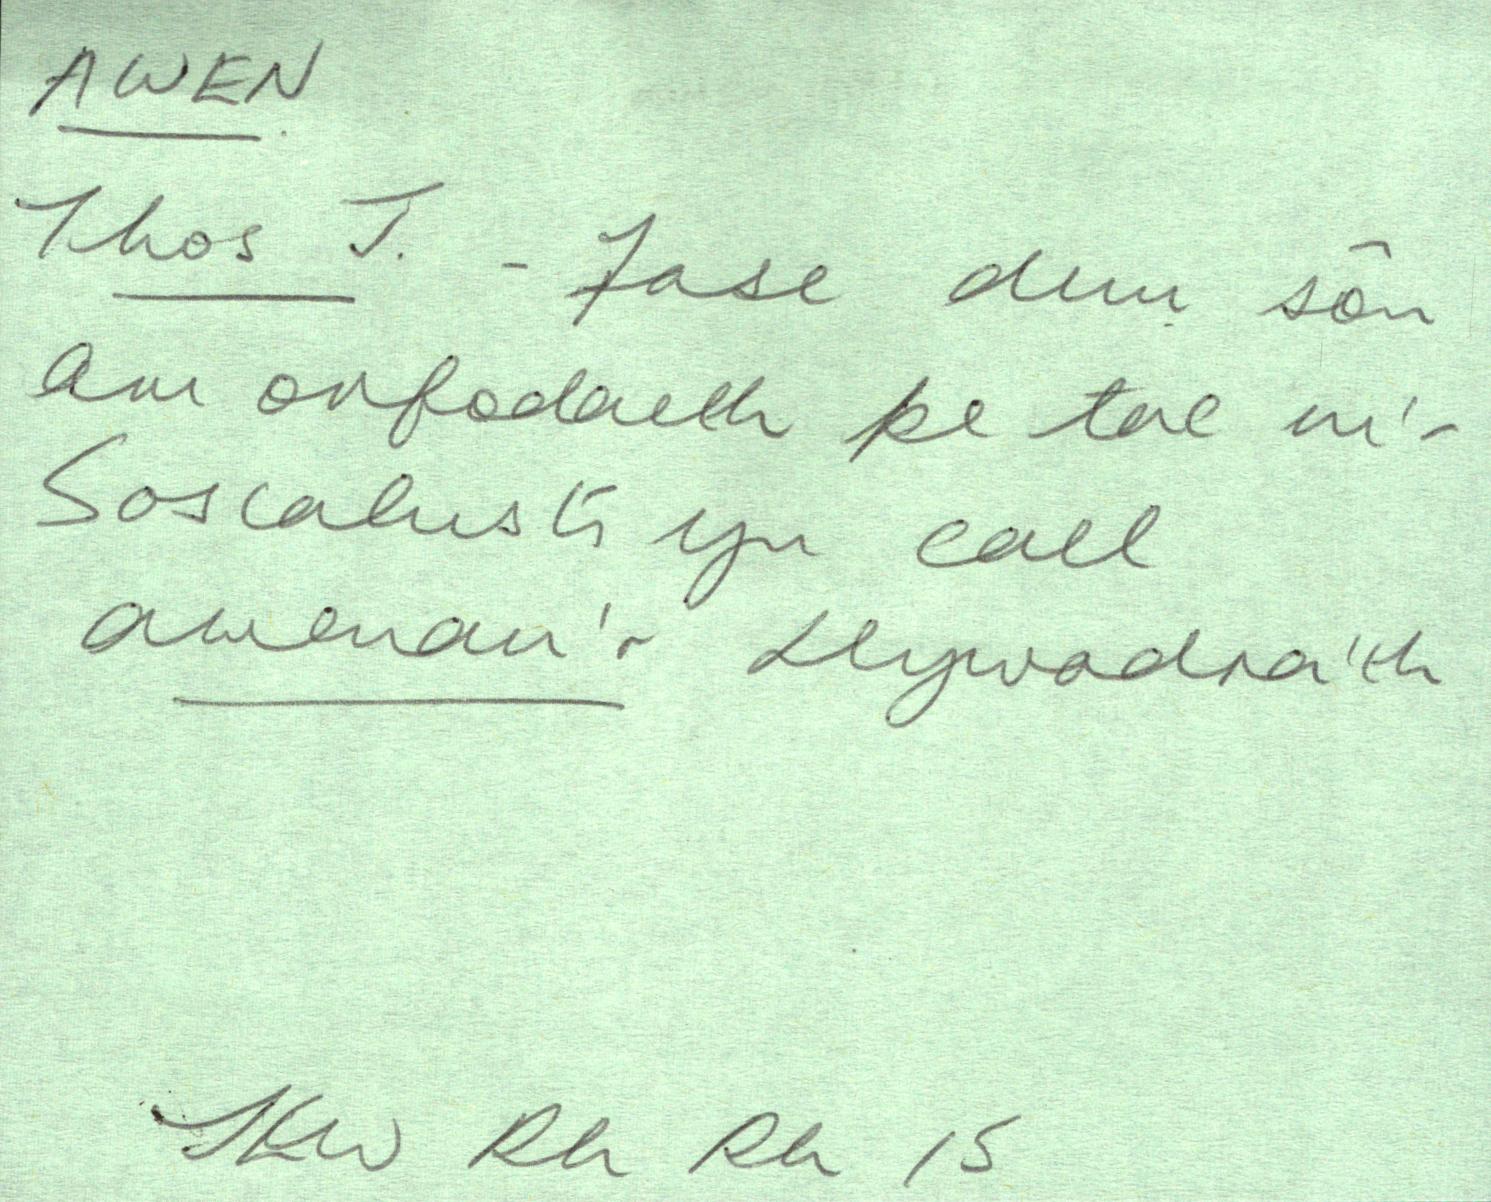 AWEN
Thos J. - Fase dim sôn
am orfodaeth pe tae ni'r
Soscialusti yn cael
awenau'r Llywodra'th
JKW Rh Rh 15